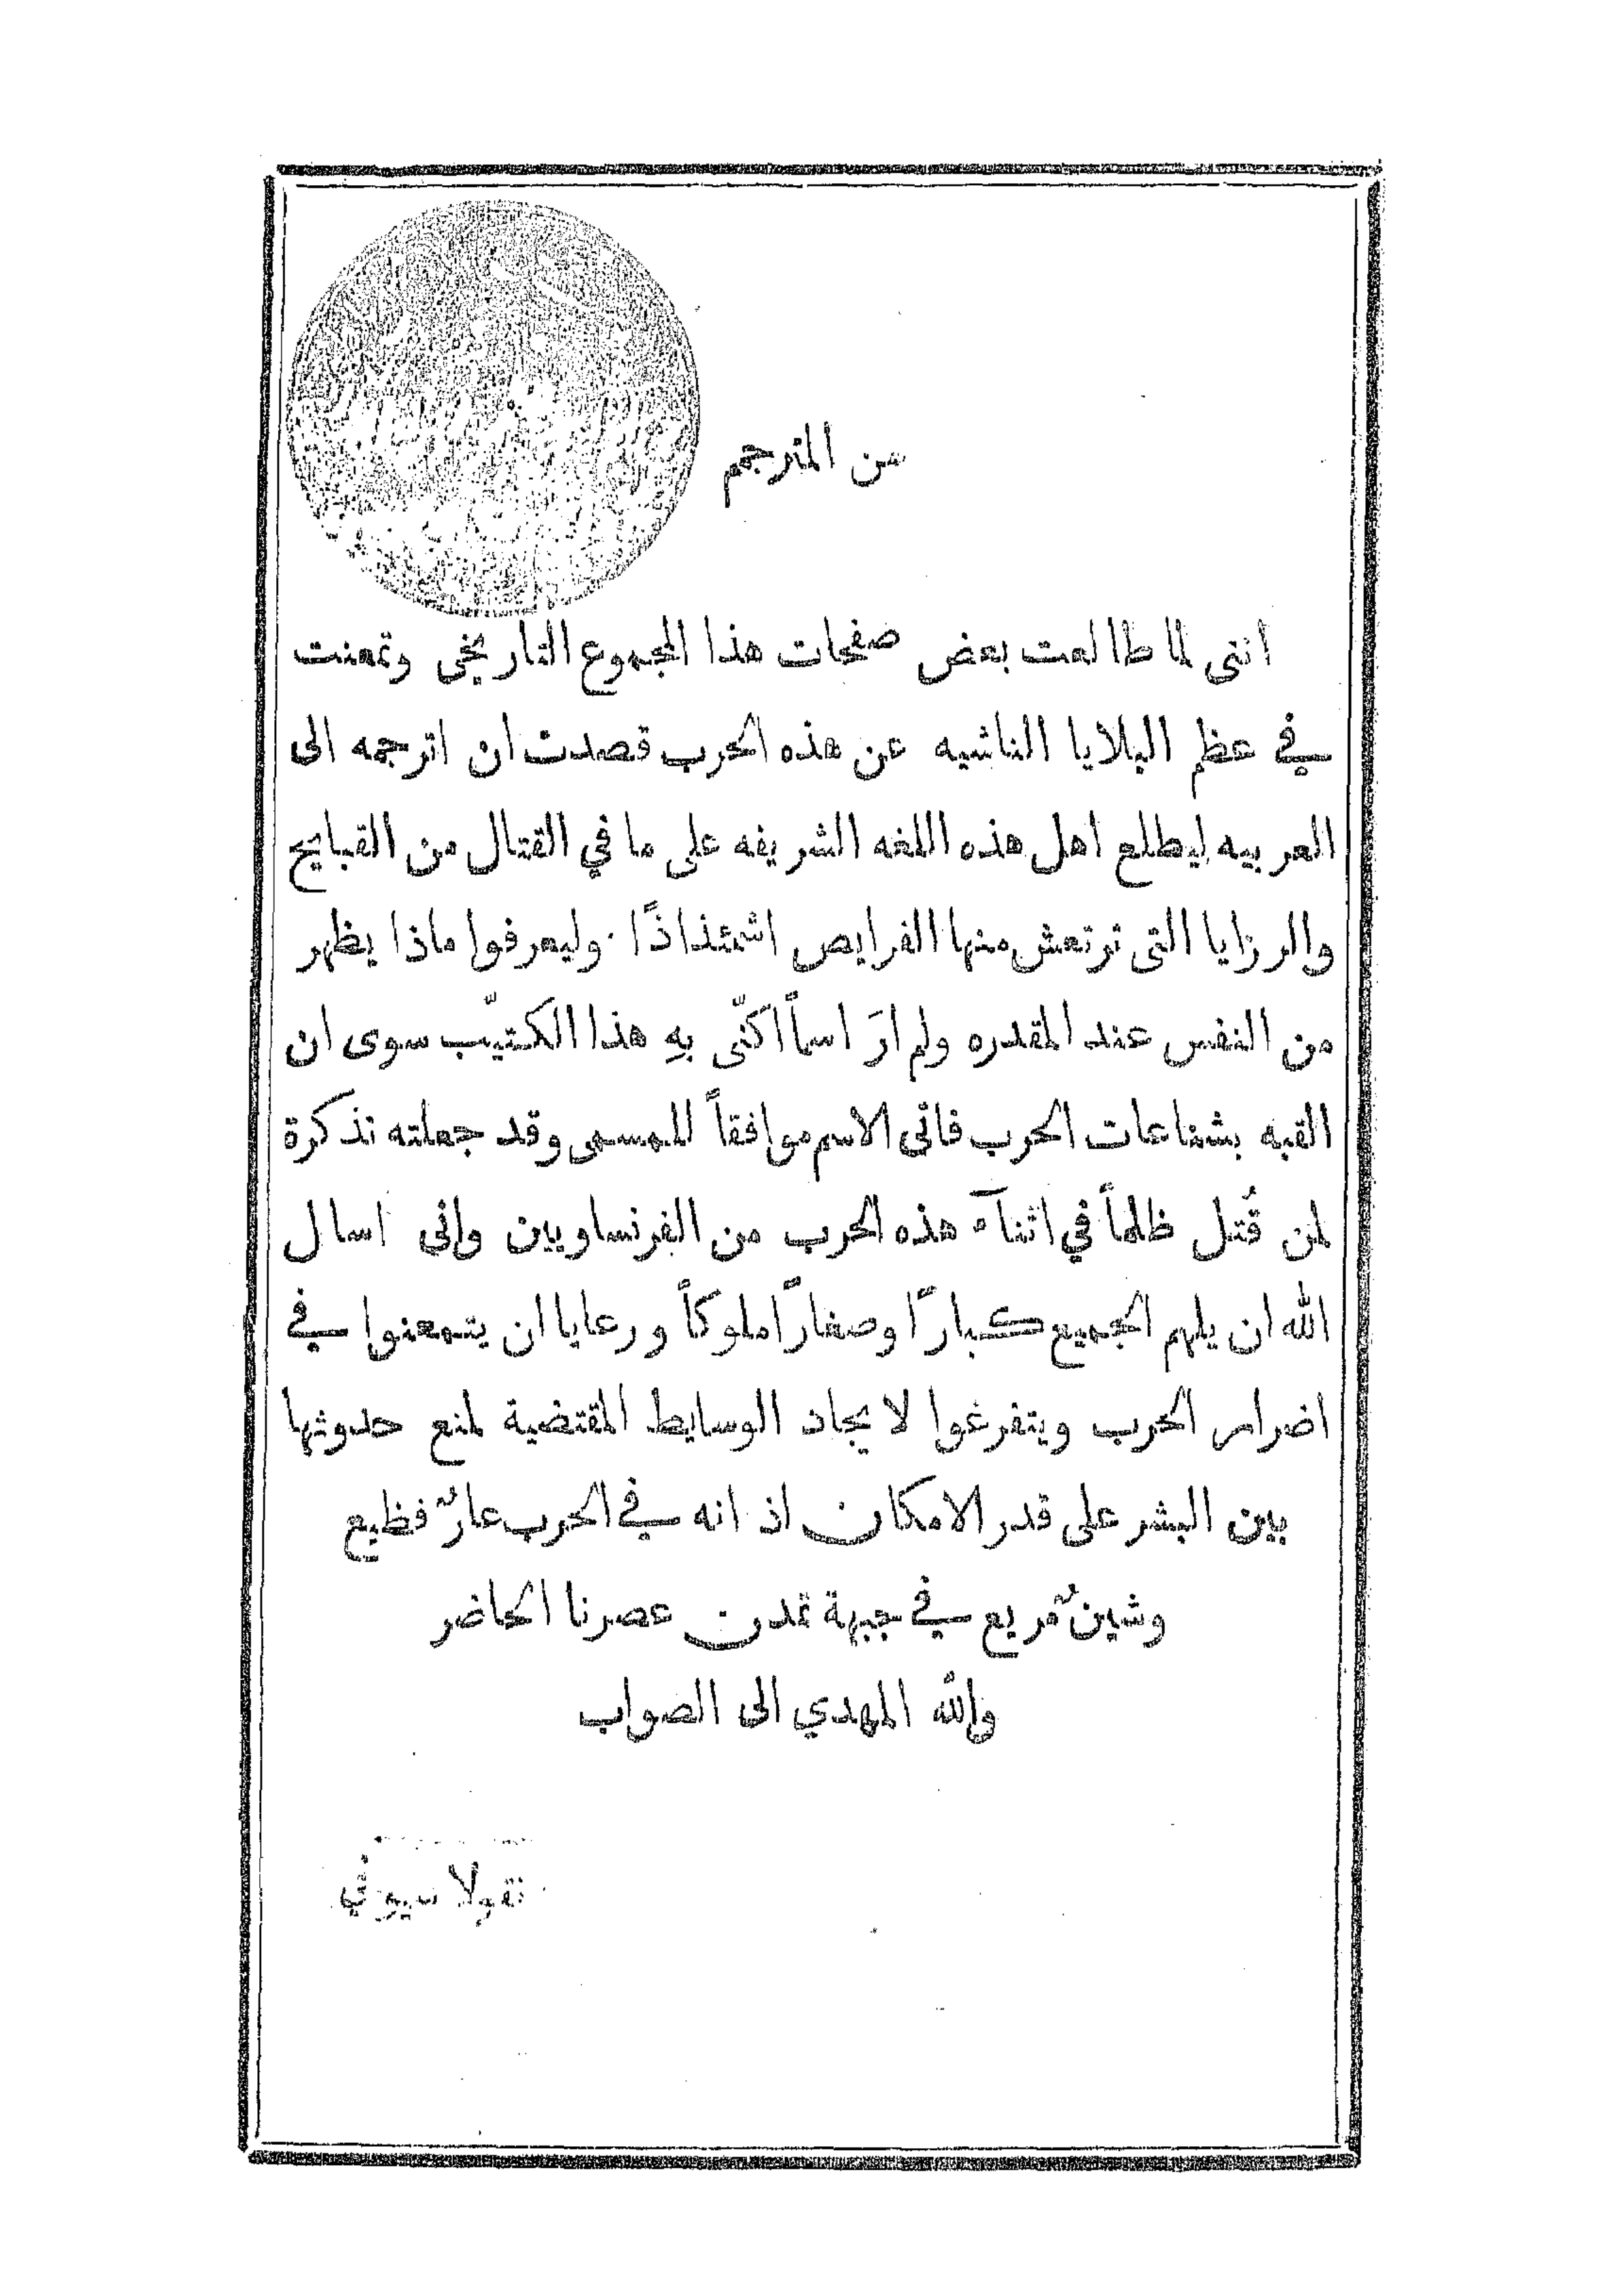 من المترجم
انني لما طالعت بعض صفحات هذا المجموع التاريخي وتمعنت
في عظم البلايا الناشيه عن هذه الحرب قصدت ان اترجمه الى
العربيه ليطلع اهل هذه اللغه الشريفه على ما في القتال من القبايح
والرزايا التي ترتعش منها الفرايص اشمئذاذًا . وليعرفوا ماذا يظهر
من النفس عند المقدره ولم ارَ اسماً اكنّي بهِ هذا الكتيّب سوى ان
القبه بشناعات الحرب فاتى الاسم موافقاً للمسمى وقد جعلته تذكرة
لمن قُتل ظلماً في اثنآء هذه الحرب من الفرنساويين واني اسال
الله ان يلهم الجميع كبارًا وصغارًا ملوكاً ورعايا ان يتمعنوا في
اضرار الحرب ويتفرغوا لايجاد الوسايط المقتضية لمنع حدوثها
بين البشر على قدر الامكان اذ انه في الحرب عارٌ فظيع
وشينٌ مريع في جبهة تمدن عصرنا الحاضر
والله المهدي الى الصواب
نقولا سيوفي